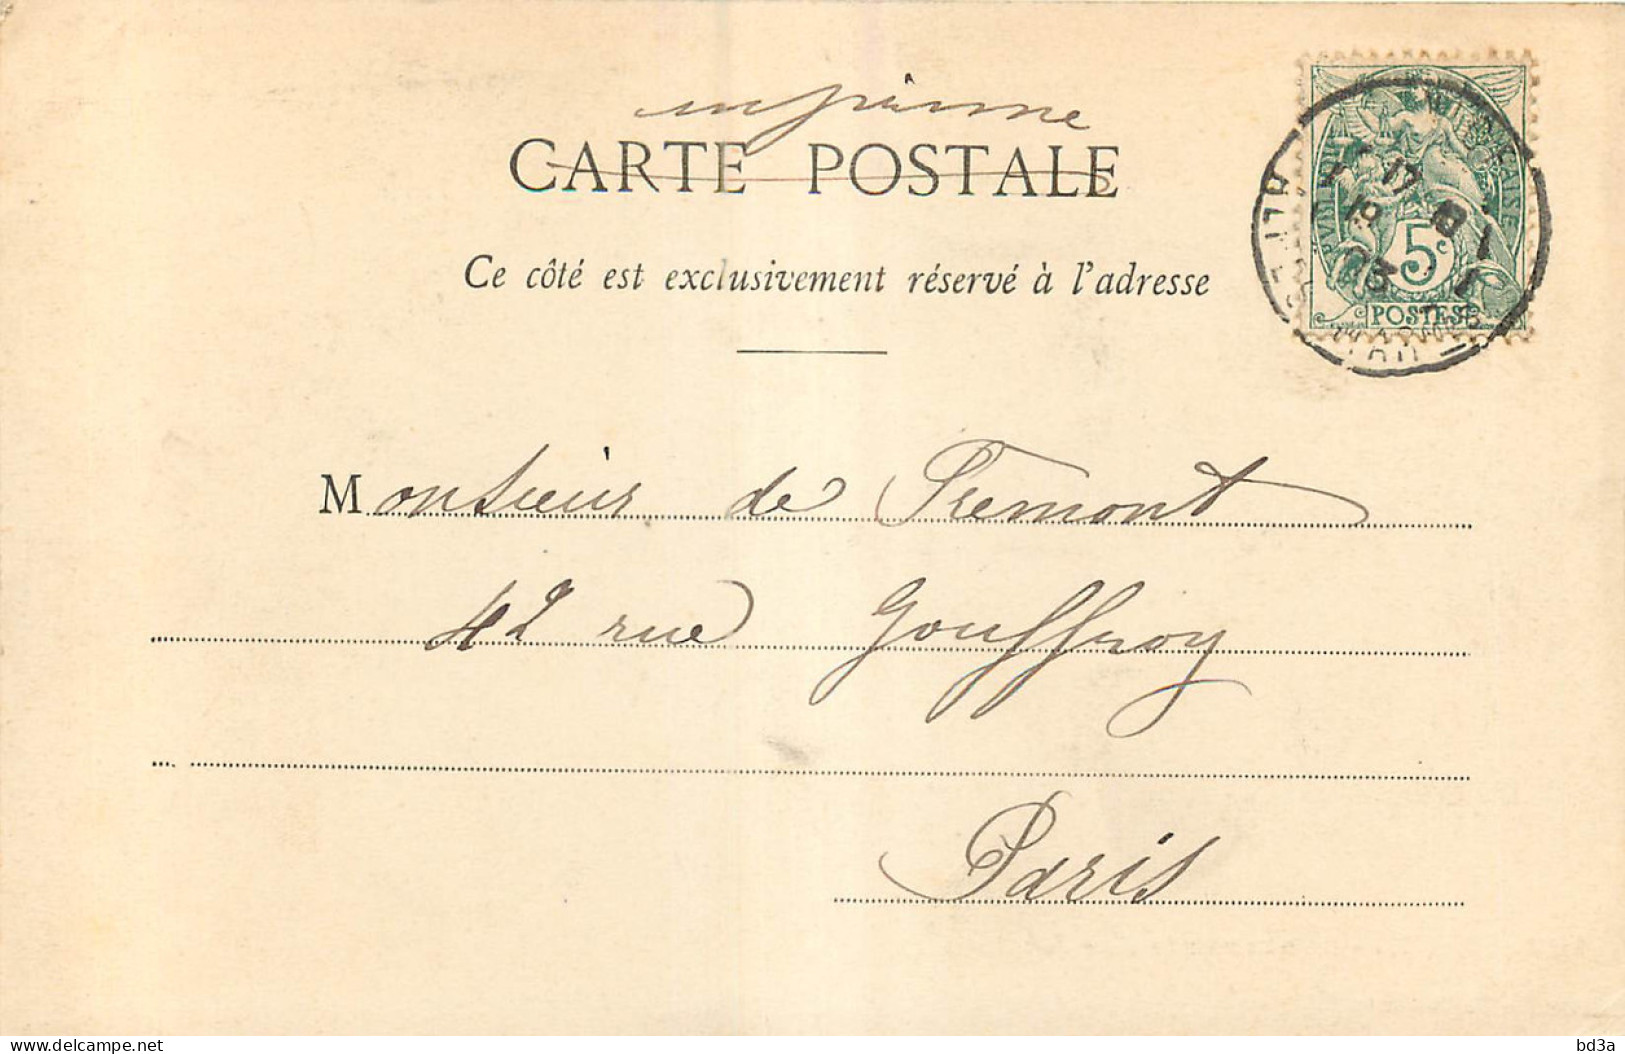 imprimé
CARTE POSTALE
Ce côté est exclusivement réservé à l'adresse
5c
POSTES
17
03
Monsieur de Fremont
42 rue Gouffroy
Paris
delcampe.net
bd3a